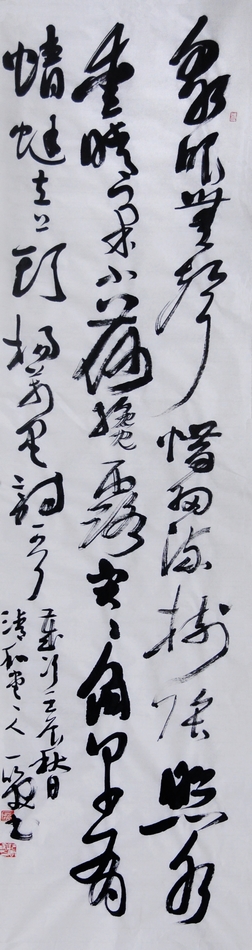 泉眼無聲惜細流樹陰照水
愛晴柔小荷才露尖尖角早有
蜻蜓立上頭楊萬里詩一首
歲次壬辰秋日